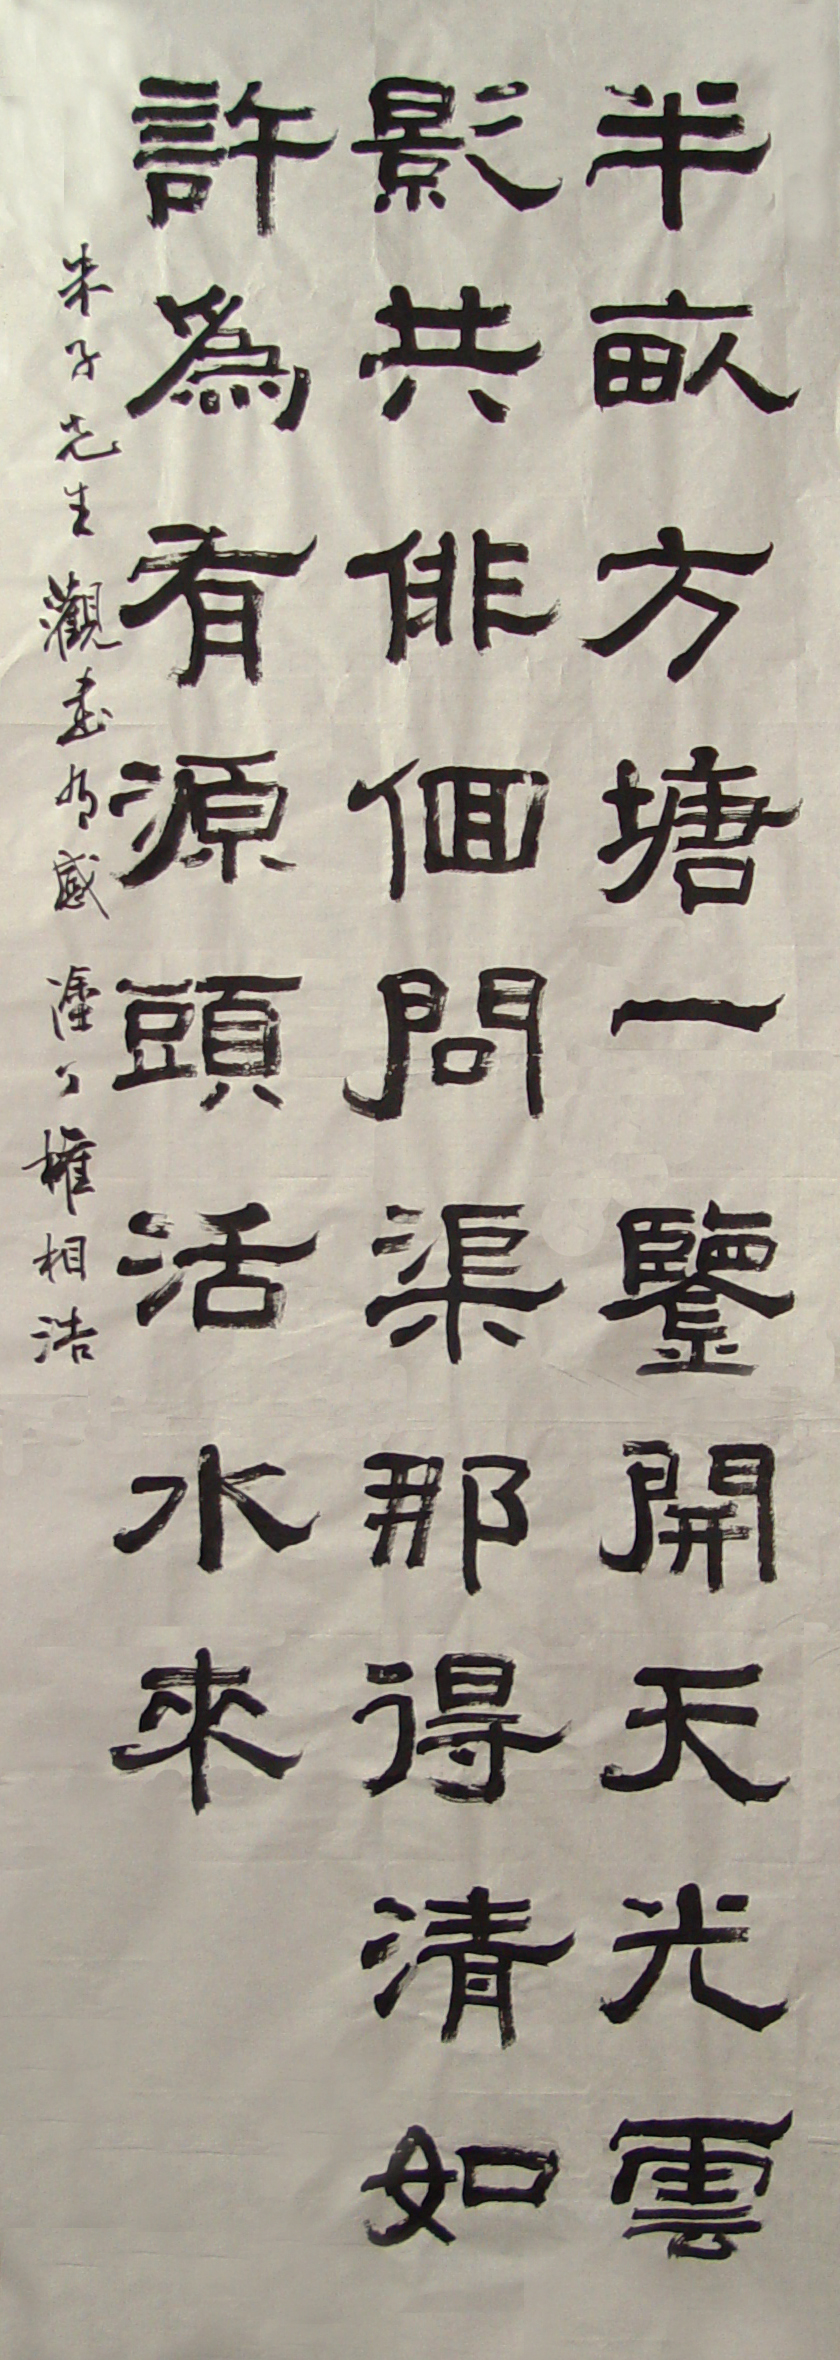 半畒方塘一鑒開天光雲
影共俳佪問渠那得清如
許為有源頭活水來
朱子先生觀書有感 權相浩